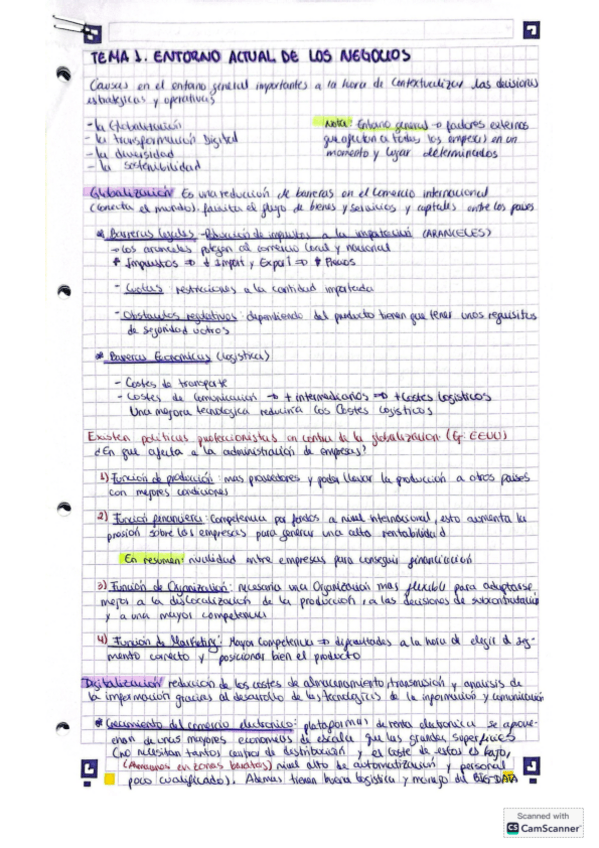 TEMA 1. ENTORNO ACTUAL DE LOS NEGOCIOS
Causas en el entorno general importantes a la hora de contextualizar las decisiones
estratégicas y operativas
- la Globalización
- la transformación Digital
- la diversidad
- la sostenibilidad
Nota: Entorno general → factores externos
que afectan a todas las empresas en un
momento y lugar determinados
Globalización Es una reducción de barreras en el comercio internacional
(conecta el mundo). facilita el flujo de bienes y servicios y capitales entre los países
* Barreras legales - Reducción de impuestos a la importación (ARANCELES)
→ Los aranceles protegen al comercio local y nacional
Impuestos ⇒ ↓ Import y Export ⇒ Precios
- Cuotas: restricciones a la cantidad importada
- Obstáculos regulativos: dependiendo del producto tienen que tener unos requisitos
de seguridad u otros
* Barreras Económicas (logística)
- Costes de transporte
- Costes de comunicación → + intermediarios ⇒ + Costes logísticos
Una mejora tecnológica reduciría los Costes logísticos
Existen políticas proteccionistas en contra de la globalización (Ej: EEUU)
¿En que afecta a la administración de empresas?
1) Función de producción: mas proveedores y poder llevar la producción a otros países
con mejores condiciones
2) Función financiera: Competencia por fondos a nivel internacional, esto aumenta la
presión sobre las empresas para generar una alta rentabilidad
En resumen: rivalidad entre empresas para conseguir financiación
3) Función de Organización: necesaria una Organización mas flexible para adaptarse
mejor a la deslocalización de la producción, a las decisiones de subcontratación
y a una mayor competencia
4) Función de Marketing: Mayor Competencia ⇒ dificultades a la hora de elegir el seg-
mento correcto y posicionar bien el producto
Digitalización reducción de los costes de almacenamiento, transmisión y análisis de
la información gracias al desarrollo de las tecnologías de la información y comunicación
* Crecimiento del comercio electrónico: plataformas de venta electrónica se aprove-
chan de unas mayores economías de escala que las grandes superficies
(no necesitan tantos centros de distribución y el coste de estos es bajo,
(Almacenes en zonas baratas) nivel alto de automatización y personal
poco cualificado). Además tienen buena logística y manejo del BIG DATA
Scanned with
CS CamScanner